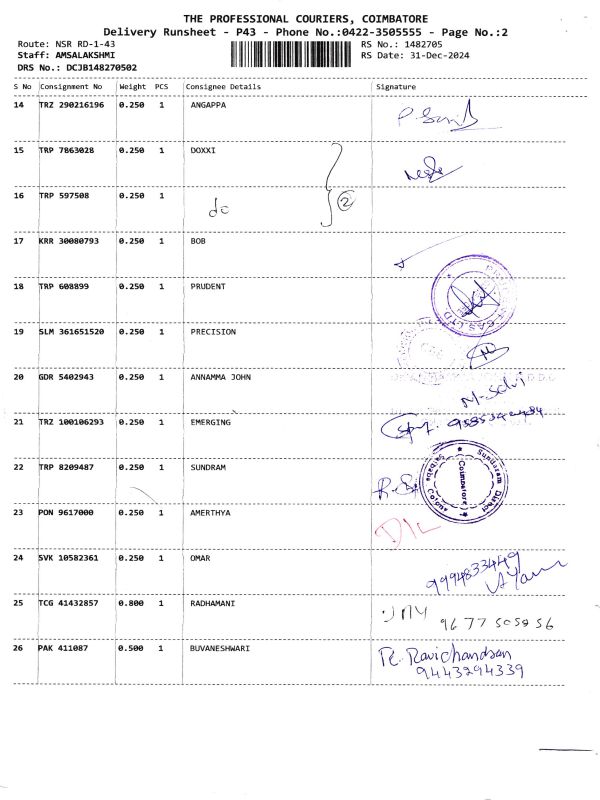 THE PROFESSIONAL COURIERS, COIMBATORE
Delivery Runsheet - P43 - Phone No.:0422-3505555 - Page No.:2
Route: NSR RD-1-43 RS No.: 1482705
Staff: AMSALAKSHMI RS Date: 31-Dec-2024
DRS No.: DCJB148270502
S No Consignment No Weight PCS Consignee Details Signature
14 TRZ 290216196 0.250 1 ANGAPPA
15 TRP 7863028 0.250 1 DOXXI
16 TRP 597508 0.250 1 do 2
17 KRR 30080793 0.250 1 BOB
18 TRP 608899 0.250 1 PRUDENT
19 SLM 361651520 0.250 1 PRECISION
20 GDR 5402943 0.250 1 ANNAMMA JOHN M-Selvi
21 TRZ 100106293 0.250 1 EMERGING
22 TRP 8209487 0.250 1 SUNDRAM Sundaram Direct Coimbatore
23 PON 9617000 0.250 1 AMERTHYA D/L
24 SVK 10582361 0.250 1 OMAR 9994833449
25 TCG 41432857 0.800 1 RADHAMANI 9677505856
26 PAK 411087 0.500 1 BUVANESHWARI R. Ravichandran
9443294339